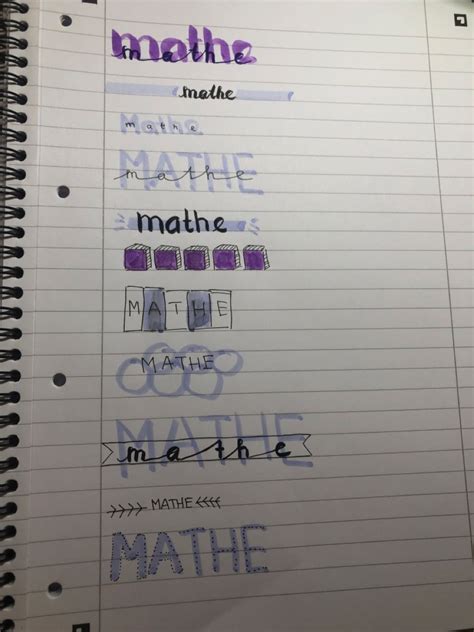 mathe
mathe
mathe
Mathe
mathe
MATHE
mathe
mathe
MATHE
MATHE
MATHE
mathe
MATHE
MATHE